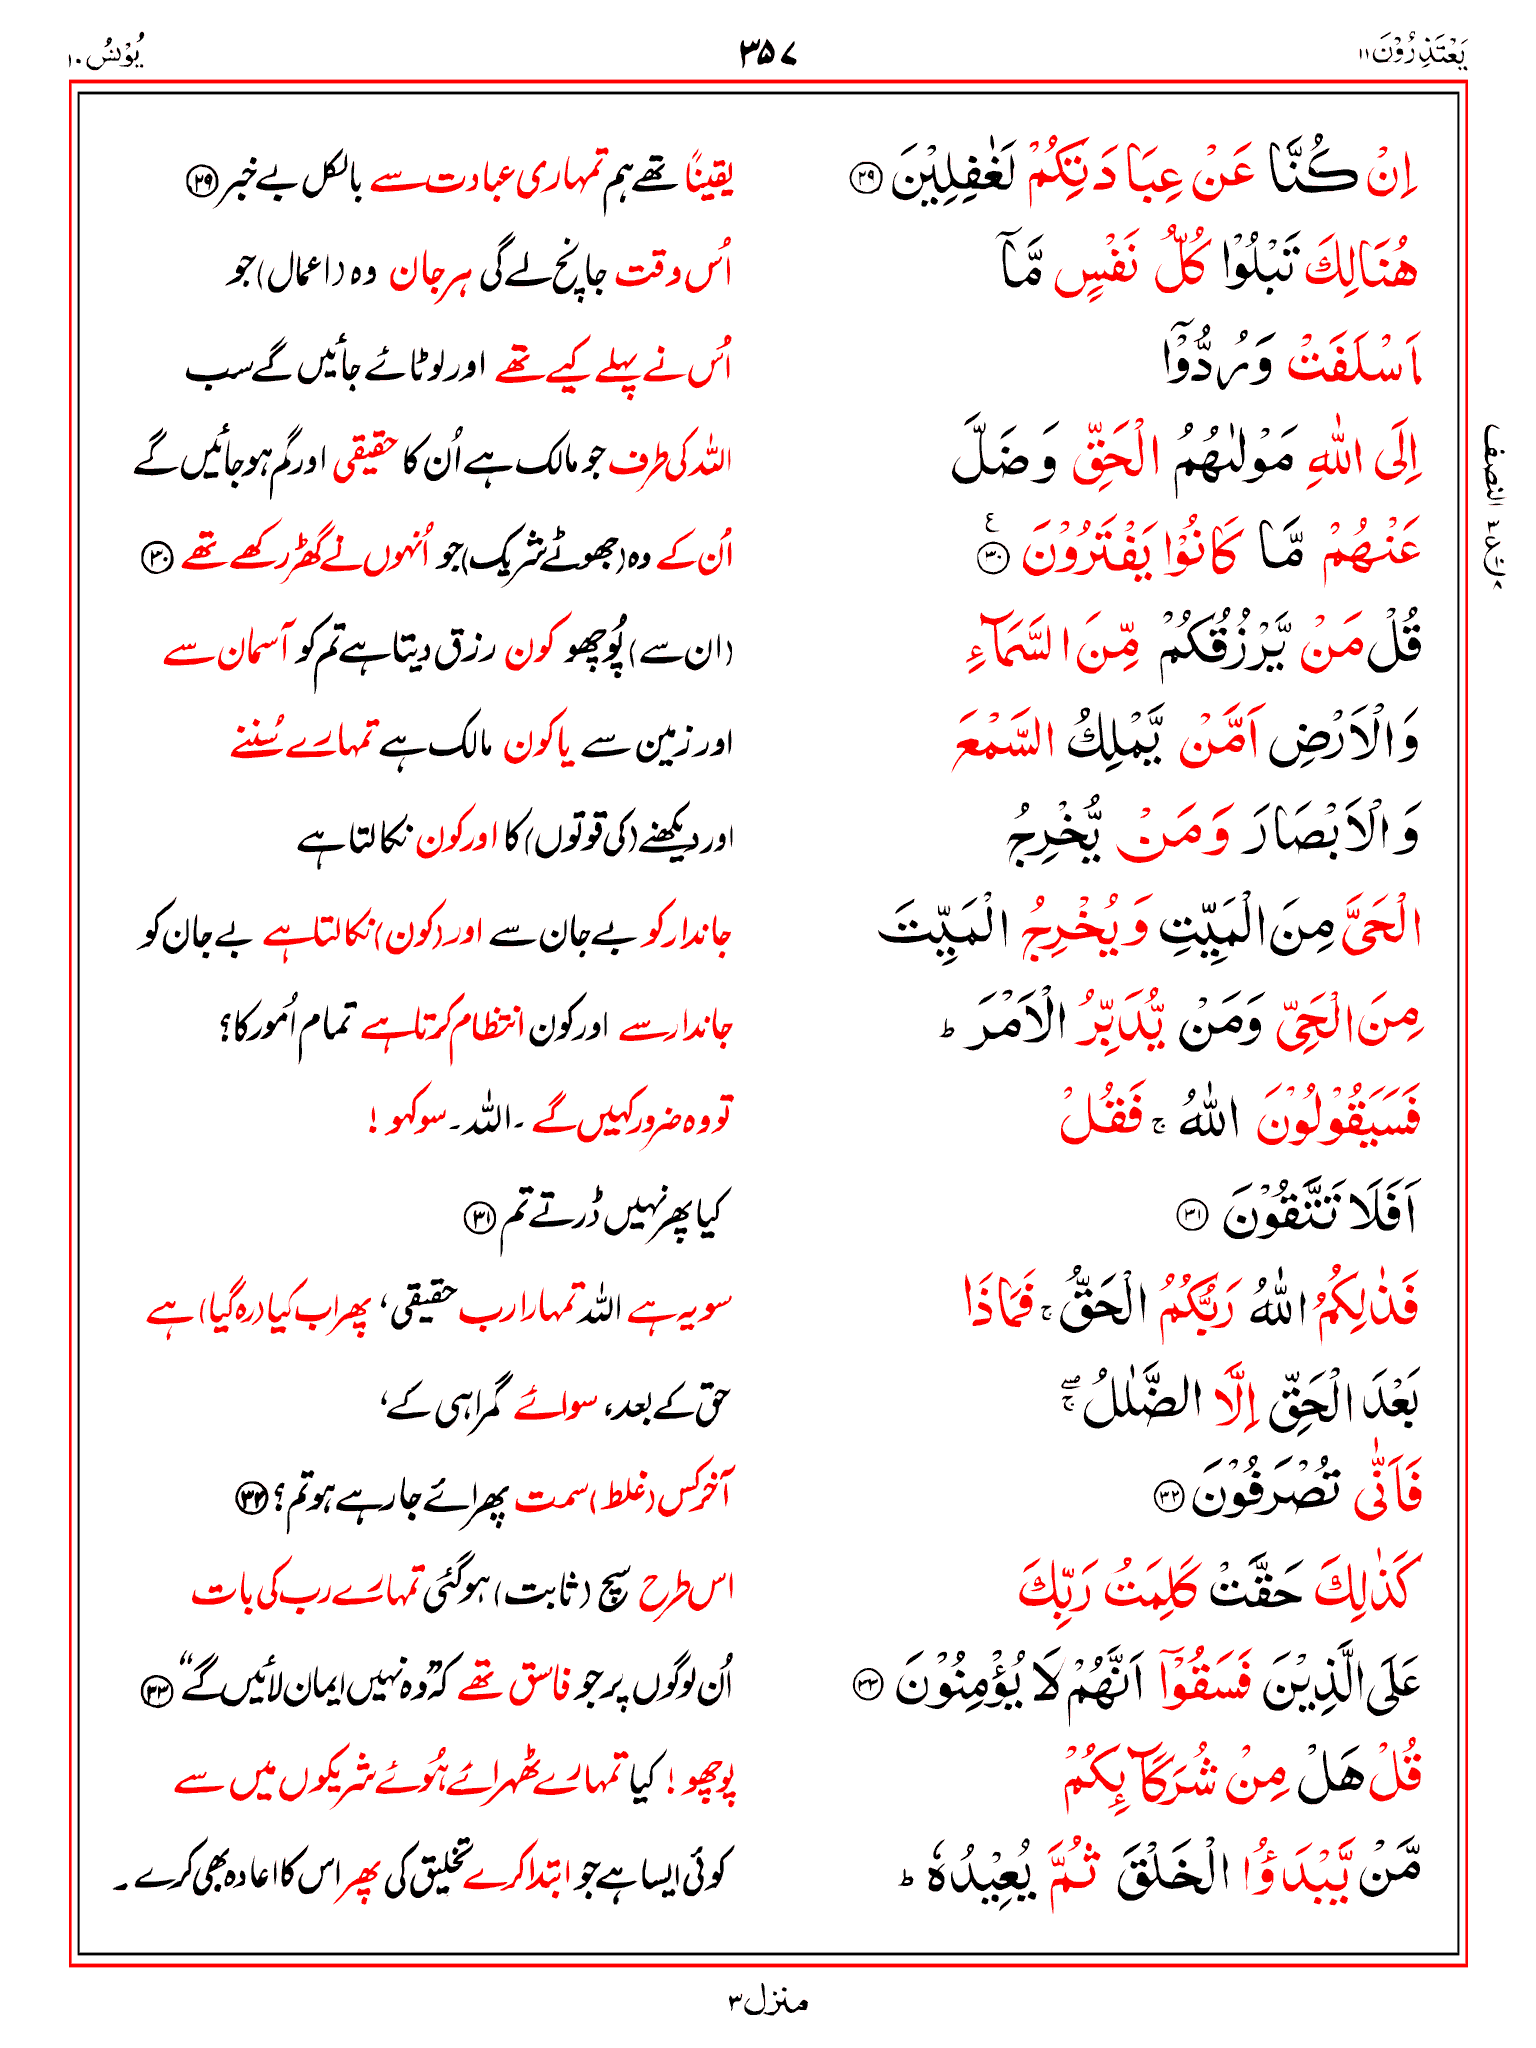 یَعْتَذِرُوْنَ ۱۱
۳۵۷
یُوْنُسُ ۱۰
اِنْ كُنَّا عَنْ عِبَادَتِكُمْ لَغٰفِلِیْنَ ﴿۲۹﴾
یقیناً تھے ہم تمہاری عبادت سے بالکل بے خبر ﴿۲۹﴾
هُنَالِكَ تَبْلُوْا كُلُّ نَفْسٍ مَّاۤ
اُس وقت جانچ لے گی ہر جان وہ (اعمال) جو
اَسْلَفَتْ وَرُدُّوْۤا
اُس نے پہلے کیے تھے اور لوٹائے جائیں گے سب
اِلَی اللّٰهِ مَوْلٰىهُمُ الْحَقِّ وَ ضَلَّ
اللہ کی طرف جو مالک ہے اُن کا حقیقی اور گم ہو جائیں گے
عَنْهُمْ مَّا كَانُوْا یَفْتَرُوْنَ ﴿۳۰﴾ ع
اُن کے وہ (جھوٹے شریک) جو اُنہوں نے گھڑ رکھے تھے ﴿۳۰﴾
قُلْ مَنْ یَّرْزُقُكُمْ مِّنَ السَّمَآءِ
(ان سے) پُوچھو کون رزق دیتا ہے تم کو آسمان سے
وَالْاَرْضِ اَمَّنْ یَّمْلِكُ السَّمْعَ
اور زمین سے یا کون مالک ہے تمہارے سُننے
وَالْاَبْصَارَ وَمَنْ یُّخْرِجُ
اور دیکھنے (کی قوتوں) کا اور کون نکالتا ہے
الْحَیَّ مِنَ الْمَیِّتِ وَیُخْرِجُ الْمَیِّتَ
جاندار کو بے جان سے اور (کون) نکالتا ہے بے جان کو
مِنَ الْحَیِّ وَمَنْ یُّدَبِّرُ الْاَمْرَ ؕ
جاندار سے اور کون انتظام کرتا ہے تمام اُمور کا؟
فَسَیَقُوْلُوْنَ اللّٰهُ ۚ فَقُلْ
تو وہ ضرور کہیں گے ۔ اللہ ۔ سو کہو !
اَفَلَا تَتَّقُوْنَ ﴿۳۱﴾
کیا پھر نہیں ڈرتے تم ﴿۳۱﴾
فَذٰلِكُمُ اللّٰهُ رَبُّكُمُ الْحَقُّ ۚ فَمَاذَا
سو یہ ہے اللہ تمہارا رب حقیقی، پھر اب کیا (رہ گیا) ہے
بَعْدَ الْحَقِّ اِلَّا الضَّلٰلُ ۖۚ
حق کے بعد، سوائے گمراہی کے،
فَاَنّٰی تُصْرَفُوْنَ ﴿۳۲﴾
آخر کس (غلط) سمت پھرائے جا رہے ہو تم؟ ﴿۳۲﴾
كَذٰلِكَ حَقَّتْ كَلِمَتُ رَبِّكَ
اس طرح سچ (ثابت) ہو گئی تمہارے رب کی بات
عَلَی الَّذِیْنَ فَسَقُوْۤا اَنَّهُمْ لَا یُؤْمِنُوْنَ ﴿۳۳﴾
اُن لوگوں پر جو فاسق تھے کہ ”وہ نہیں ایمان لائیں گے“ ﴿۳۳﴾
قُلْ هَلْ مِنْ شُرَكَآىِٕكُمْ
پوچھو ! کیا تمہارے ٹھہرائے ہُوئے شریکوں میں سے
مَّنْ یَّبْدَؤُا الْخَلْقَ ثُمَّ یُعِیْدُهٗ ؕ
کوئی ایسا ہے جو ابتدا کرے تخلیق کی پھر اس کا اعادہ بھی کرے ۔
النصف
منزل ۳